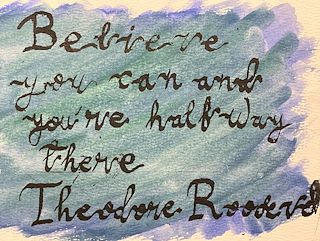 Believe
you can and
you're halfway
there
Theodore Roosevel